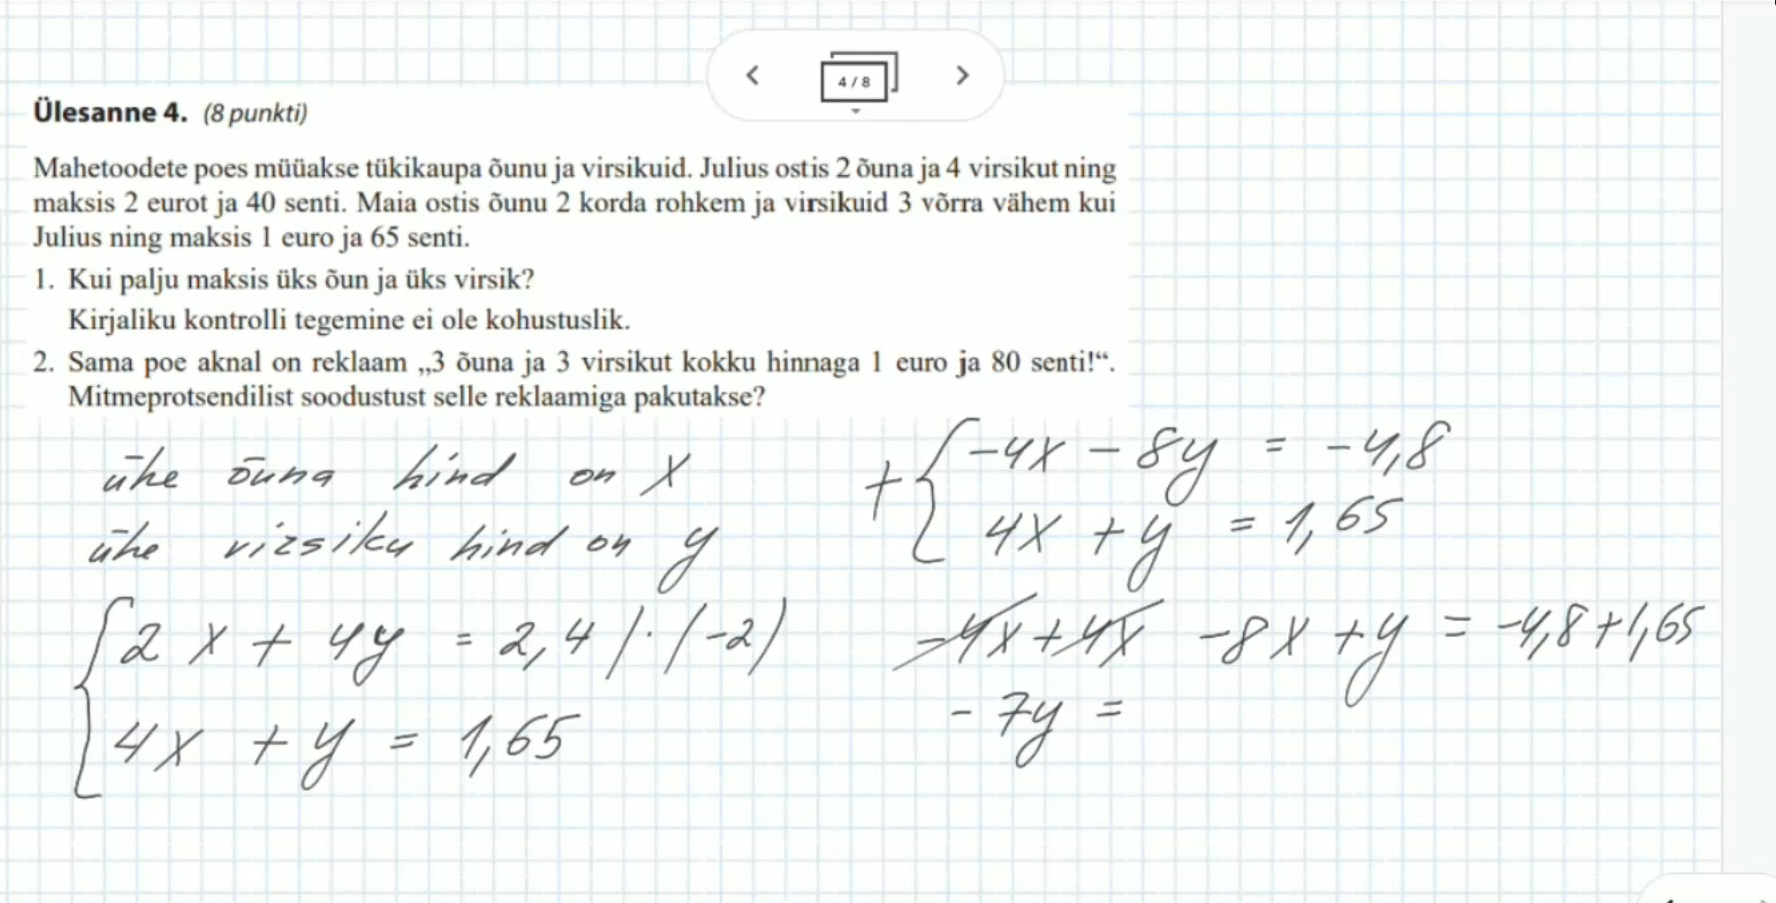 4 / 8
Ülesanne 4. (8 punkti)
Mahetoodete poes müüakse tükikaupa õunu ja virsikuid. Julius ostis 2 õuna ja 4 virsikut ning
maksis 2 eurot ja 40 senti. Maia ostis õunu 2 korda rohkem ja virsikuid 3 võrra vähem kui
Julius ning maksis 1 euro ja 65 senti.
1. Kui palju maksis üks õun ja üks virsik?
Kirjaliku kontrolli tegemine ei ole kohustuslik.
2. Sama poe aknal on reklaam „3 õuna ja 3 virsikut kokku hinnaga 1 euro ja 80 senti!“.
Mitmeprotsendilist soodustust selle reklaamiga pakutakse?
ühe õuna hind on x
ühe virsiku hind on y
2x + 4y = 2,4 | · (-2)
4x + y = 1,65
+ { -4x - 8y = -4,8
4x + y = 1,65
-4x + 4x - 8x + y = -4,8 + 1,65
- 7y =